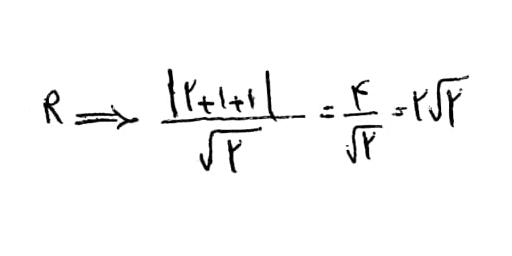 R ⟹ |۲+۱+۱| / √۲ = ۴ / √۲ = ۲√۲